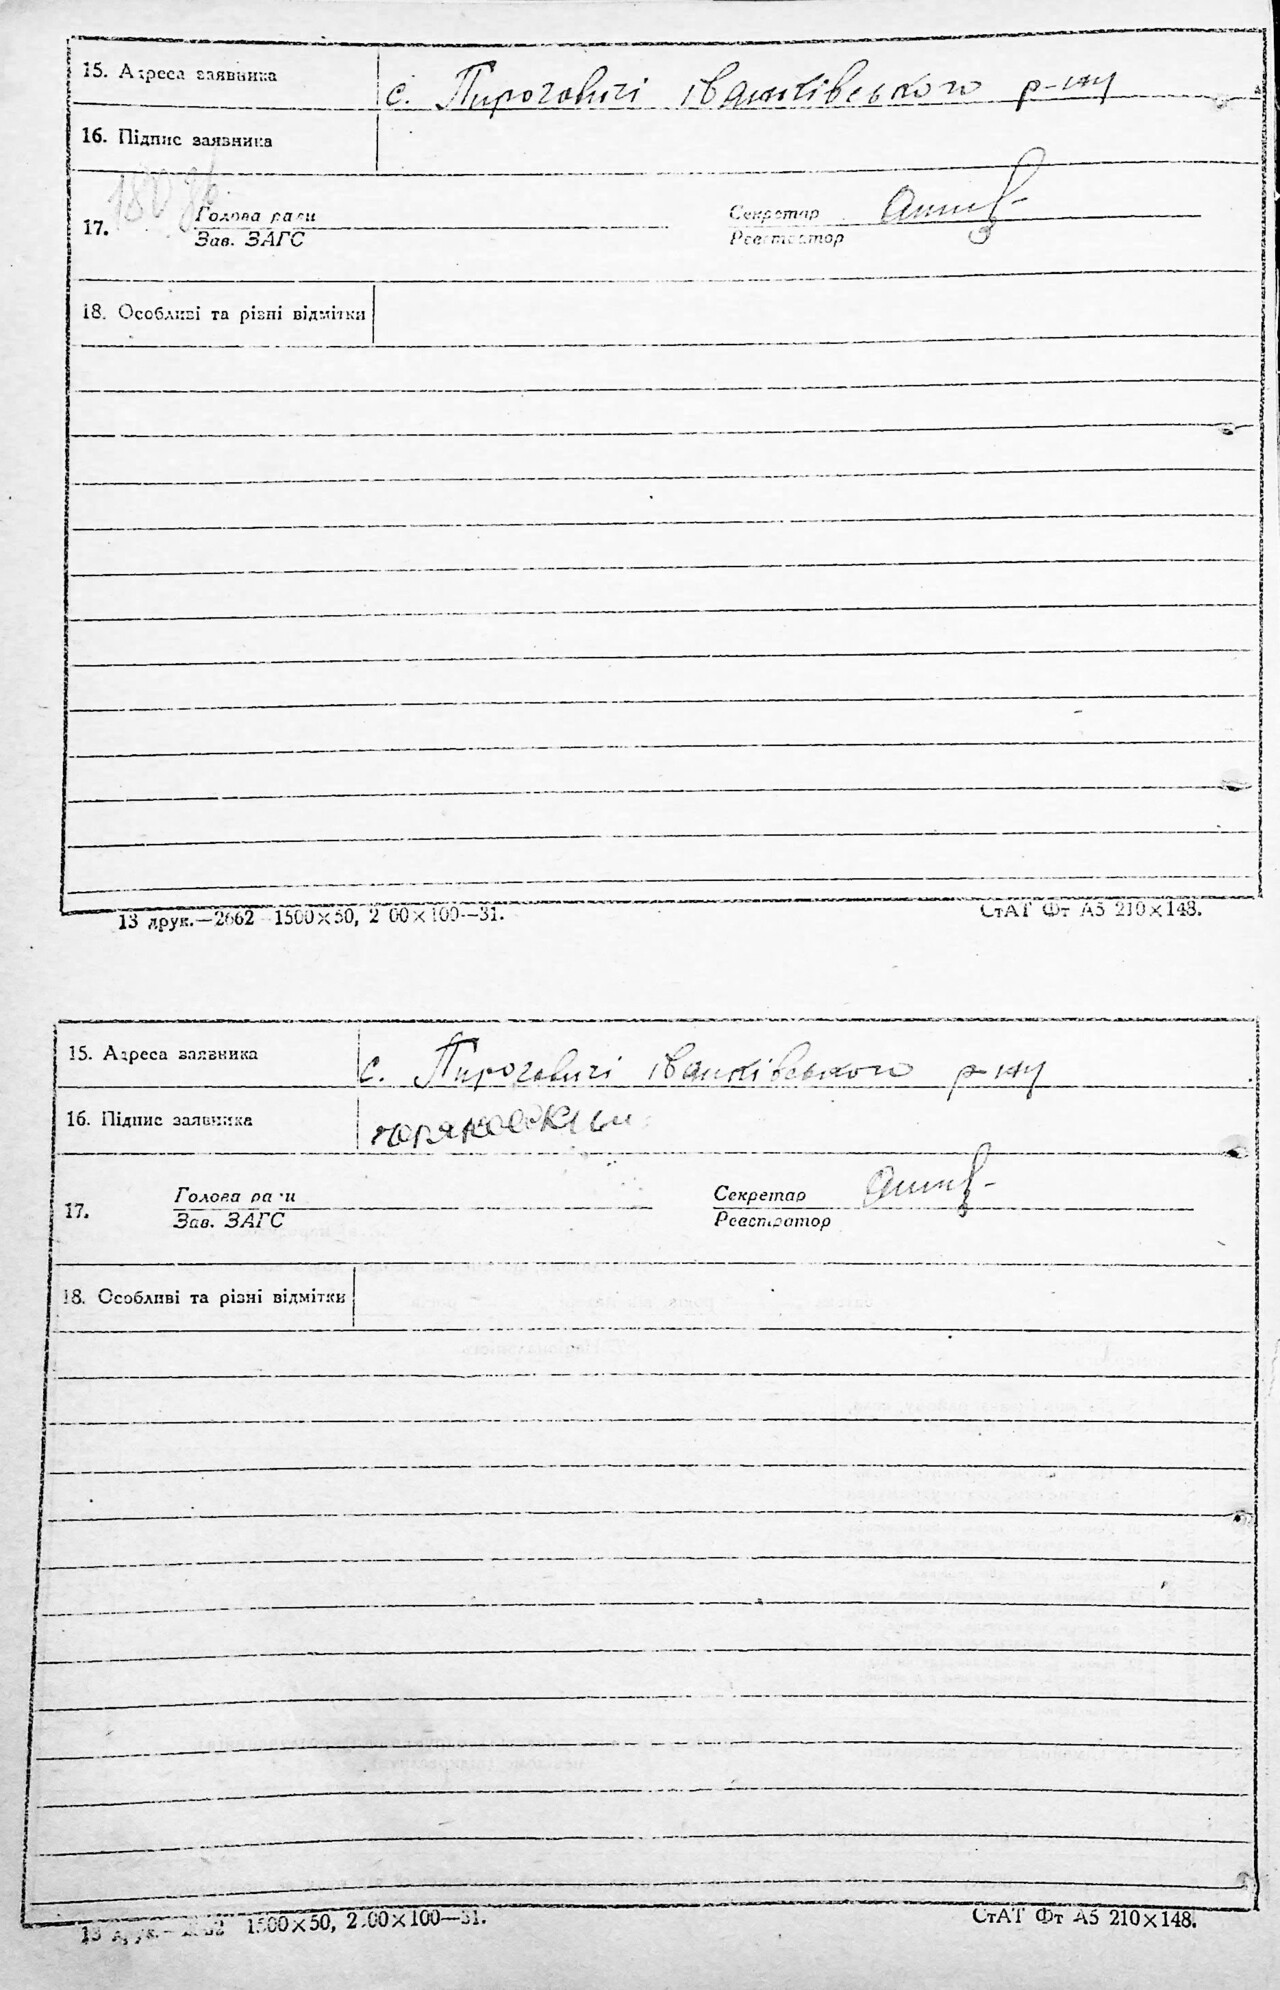 15. Адреса заявника с. Пироговичі іванківського р-ну
16. Підпис заявника
180 зв.
17. Голова ради Секретар
Зав. ЗАГС Реєстратор
18. Особливі та різні відмітки
13 друк.—2662 1500×50, 2 00×100—31. СтАТ Фт А5 210×148.
15. Адреса заявника с. Пироговичі іванківського р-ну
16. Підпис заявника
17. Голова ради Секретар
Зав. ЗАГС Реєстратор
18. Особливі та різні відмітки
13 друк.— 1500×50, 2.00×100—31. СтАТ Фт А5 210×148.